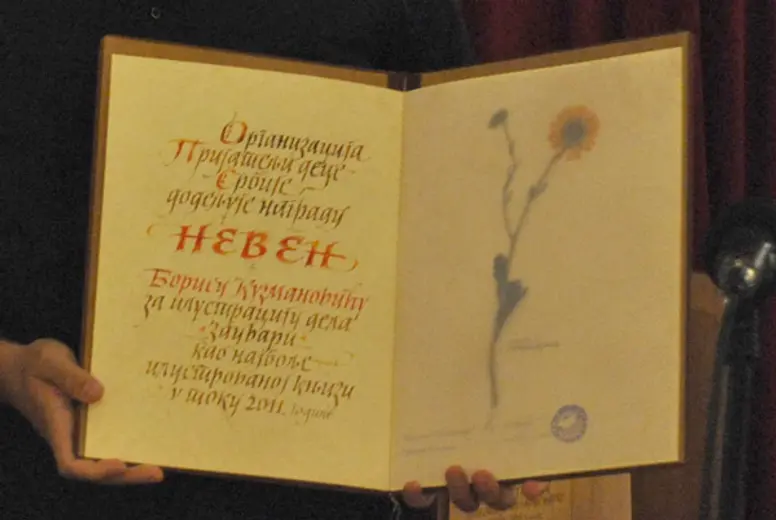 Организација
Пријатељи деце
Србије
додељује награду
НЕВЕН
Борису Кузмановићу
за илустрацију дела
Зауври
као најбоље
илустрованој књизи
у току 2011. године